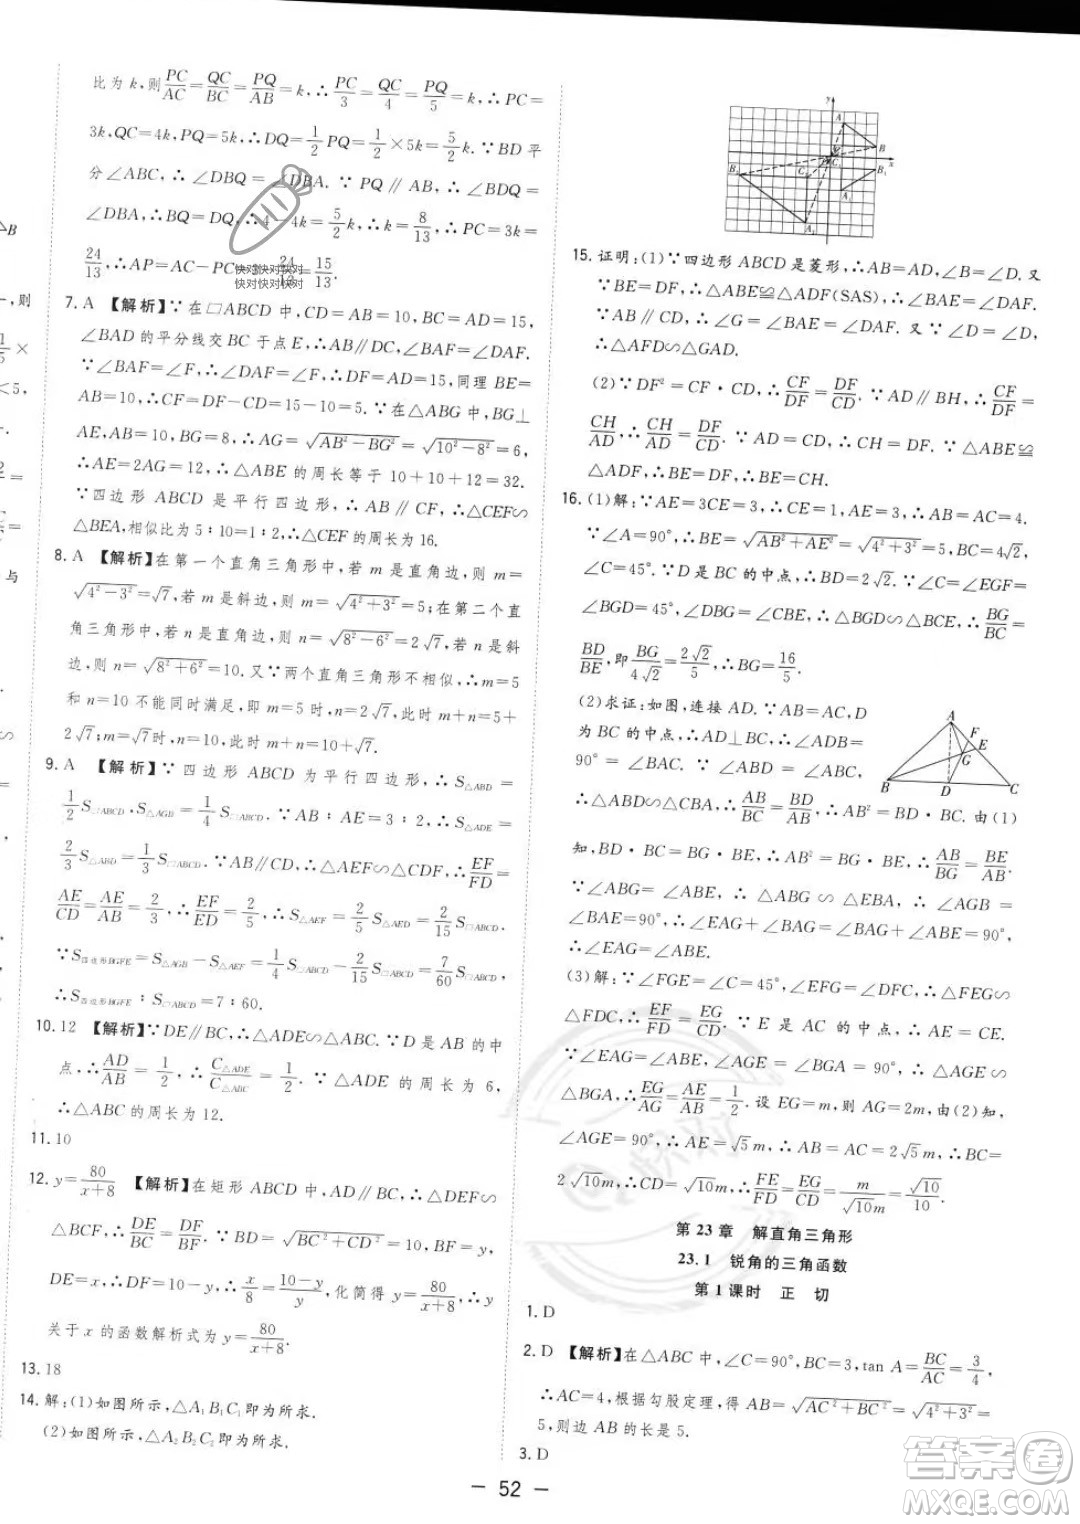 比为 k,则PC/AC=QC/BC=PQ/AB=k,∴PC/3=QC/4=PQ/5=k,∴PC=
3k,QC=4k,PQ=5k,∴DQ=1/2PQ=1/2×5k=5/2k.∵BD平
分∠ABC,∴∠DBQ=∠DBA.∵PQ∥AB,∴∠QDB=
∠DBA,∴BQ=DQ,∴4-4k=5/2k,∴k=8/13,∴PC=3k=
24/13,∴AP=AC-PC=3-24/13=15/13.
7.A 【解析】∵在□ABCD中,CD=AB=10,BC=AD=15,
∠BAD的平分线交BC于点E,∴AB∥DC,∠BAF=∠DAF.
∵∠BAF=∠F,∴∠DAF=∠F,∴DF=AD=15,同理BE=
AB=10,∴CF=DF-CD=15-10=5.∵在△ABG中,BG⊥
AE,AB=10,BG=8,∴AG=√(AB²-BG²)=√(10²-8²)=6,
∴AE=2AG=12,∴△ABE的周长等于10+10+12=32.
∵四边形ABCD是平行四边形,∴AB∥CF,∴△CEF∽
△BEA,相似比为5∶10=1∶2,∴△CEF的周长为16.
8.A 【解析】在第一个直角三角形中,若m是直角边,则m=
√(4²-3²)=√7,若m是斜边,则m=√(4²+3²)=5;在第二个直
角三角形中,若n是直角边,则n=√(8²-6²)=2√7,若n是斜
边,则n=√(8²+6²)=10.又∵两个直角三角形不相似,∴m=5
和n=10不能同时满足,即m=5时,n=2√7,此时m+n=5+
2√7;m=√7时,n=10,此时m+n=10+√7.
9.A 【解析】∵四边形ABCD为平行四边形,∴S△ABD=
1/2S□ABCD,S△AGB=1/4S□ABCD.∵AB∶AE=3∶2,∴S△ADE=
2/3S△ABD=1/3S□ABCD.∵AB∥CD,∴△AEF∽△CDF,∴EF/FD=
AE/CD=AE/AB=2/3,∴EF/ED=2/5,∴S△AEF=2/5S△AED=2/15S□ABCD.
∵S四边形BGFE=S△AGB-S△AEF=1/4S□ABCD-2/15S□ABCD=7/60S□ABCD,
∴S四边形BGFE∶S□ABCD=7∶60.
10.12 【解析】∵DE∥BC,∴△ADE∽△ABC.∵D是AB的中
点,∴AD/AB=1/2,∴C△ADE/C△ABC=1/2.∵△ADE的周长为6,
∴△ABC的周长为12.
11.10
12.y=80/(x+8) 【解析】在矩形ABCD中,AD∥BC,∴△DEF∽
△BCF,∴DE/BC=DF/BF.∵BD=√(BC²+CD²)=10,BF=y,
DE=x,∴DF=10-y,∴x/8=(10-y)/y,化简得y=80/(x+8),∴y
关于x的函数解析式为y=80/(x+8).
13.18
14.解:(1)如图所示,△A₁B₁C₁即为所求.
(2)如图所示,△A₂B₂C₂即为所求.
15.证明:(1)∵四边形ABCD是菱形,∴AB=AD,∠B=∠D.又
∵BE=DF,∴△ABE≌△ADF(SAS),∴∠BAE=∠DAF.
∵AB∥CD,∴∠G=∠BAE,∴∠G=∠DAF.又∵∠D=∠D,
∴△AFD∽△GAD.
(2)∵DF²=CF·CD,∴CF/DF=DF/CD.∵AD∥BH,∴CF/DF=
CH/AD,∴CH/AD=DF/CD.∵AD=CD,∴CH=DF.∵△ABE≌
△ADF,∴BE=DF,∴BE=CH.
16.(1)解:∵AE=3CE=3,∴CE=1,AE=3,∴AB=AC=4.
∵∠A=90°,∴BE=√(AB²+AE²)=√(4²+3²)=5,BC=4√2,
∠C=45°.∵D是BC的中点,∴BD=2√2.∵∠C=∠EGF=
∠BGD=45°,∠DBG=∠CBE,∴△BGD∽△BCE,∴BG/BC=
BD/BE,即BG/4√2=2√2/5,∴BG=16/5.
(2)求证:如图,连接AD.∵AB=AC,D
为BC的中点,∴AD⊥BC,∴∠ADB=
90°=∠BAC.∵∠ABD=∠CBA,
∴△ABD∽△CBA,∴AB/BC=BD/AB,∴AB²=BD·BC.由(1)
知,BD·BC=BG·BE,∴AB²=BG·BE,∴AB/BG=BE/AB.
∵∠ABG=∠ABE,∴△ABG∽△EBA,∴∠AGB=
∠BAE=90°,∴∠BAG+∠ABG=∠BAG+∠EAG=90°,
∴∠EAG=∠ABE.
(3)解:∵∠FGE=∠C=45°,∠EFG=∠DFC,∴△FEG∽
△FDC,∴EF/FD=EG/CD.∵E是AC的中点,∴AE=CE.
∵∠EAG=∠ABE,∠AGE=∠BGA=90°,∴△AGE∽
△BGA,∴EG/AG=AE/AB=1/2.设EG=m,则AG=2m,由(2)知,
∠AGE=90°,∴AE=√5m,∴AB=AC=2√5m,∴BC=
2√10m,∴CD=√10m,∴FE/FD=EG/CD=m/√10m=√10/10.
第23章 解直角三角形
23.1 锐角的三角函数
第1课时 正 切
1.D
2.D 【解析】在△ABC中,∠C=90°,BC=3,tan A=BC/AC=3/4,
∴AC=4,根据勾股定理,得AB=√(AC²+BC²)=√(4²+3²)=
5,则边AB的长是5.
3.D
— 52 —
快对快对快对
快对快对快对
答案圈
MXQE.COM